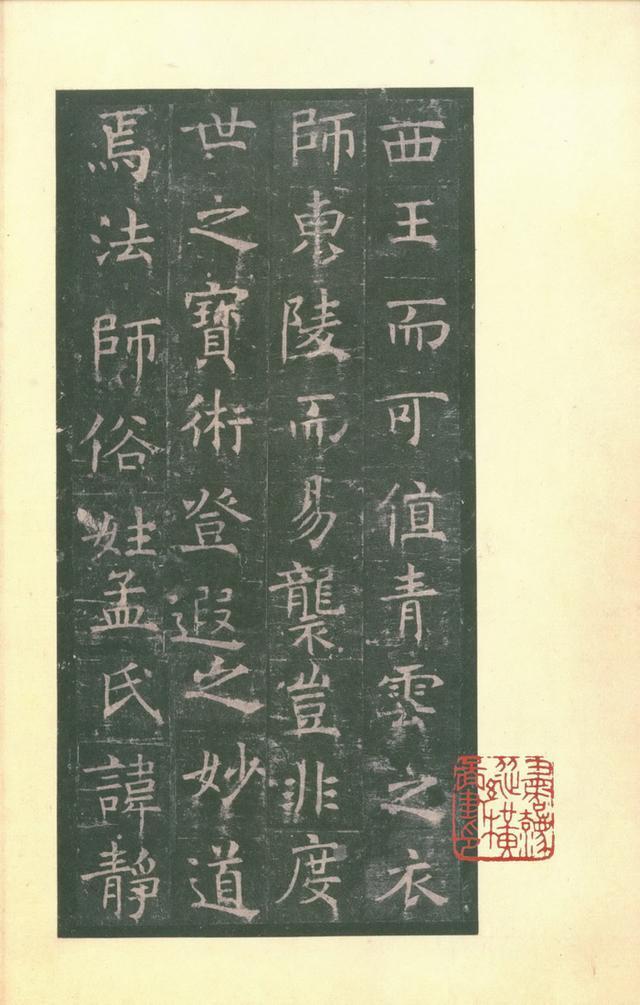 西王而可值青雲之衣
師東陵而易襲豈非度
世之寶術登遐之妙道
焉法師俗姓孟氏諱靜